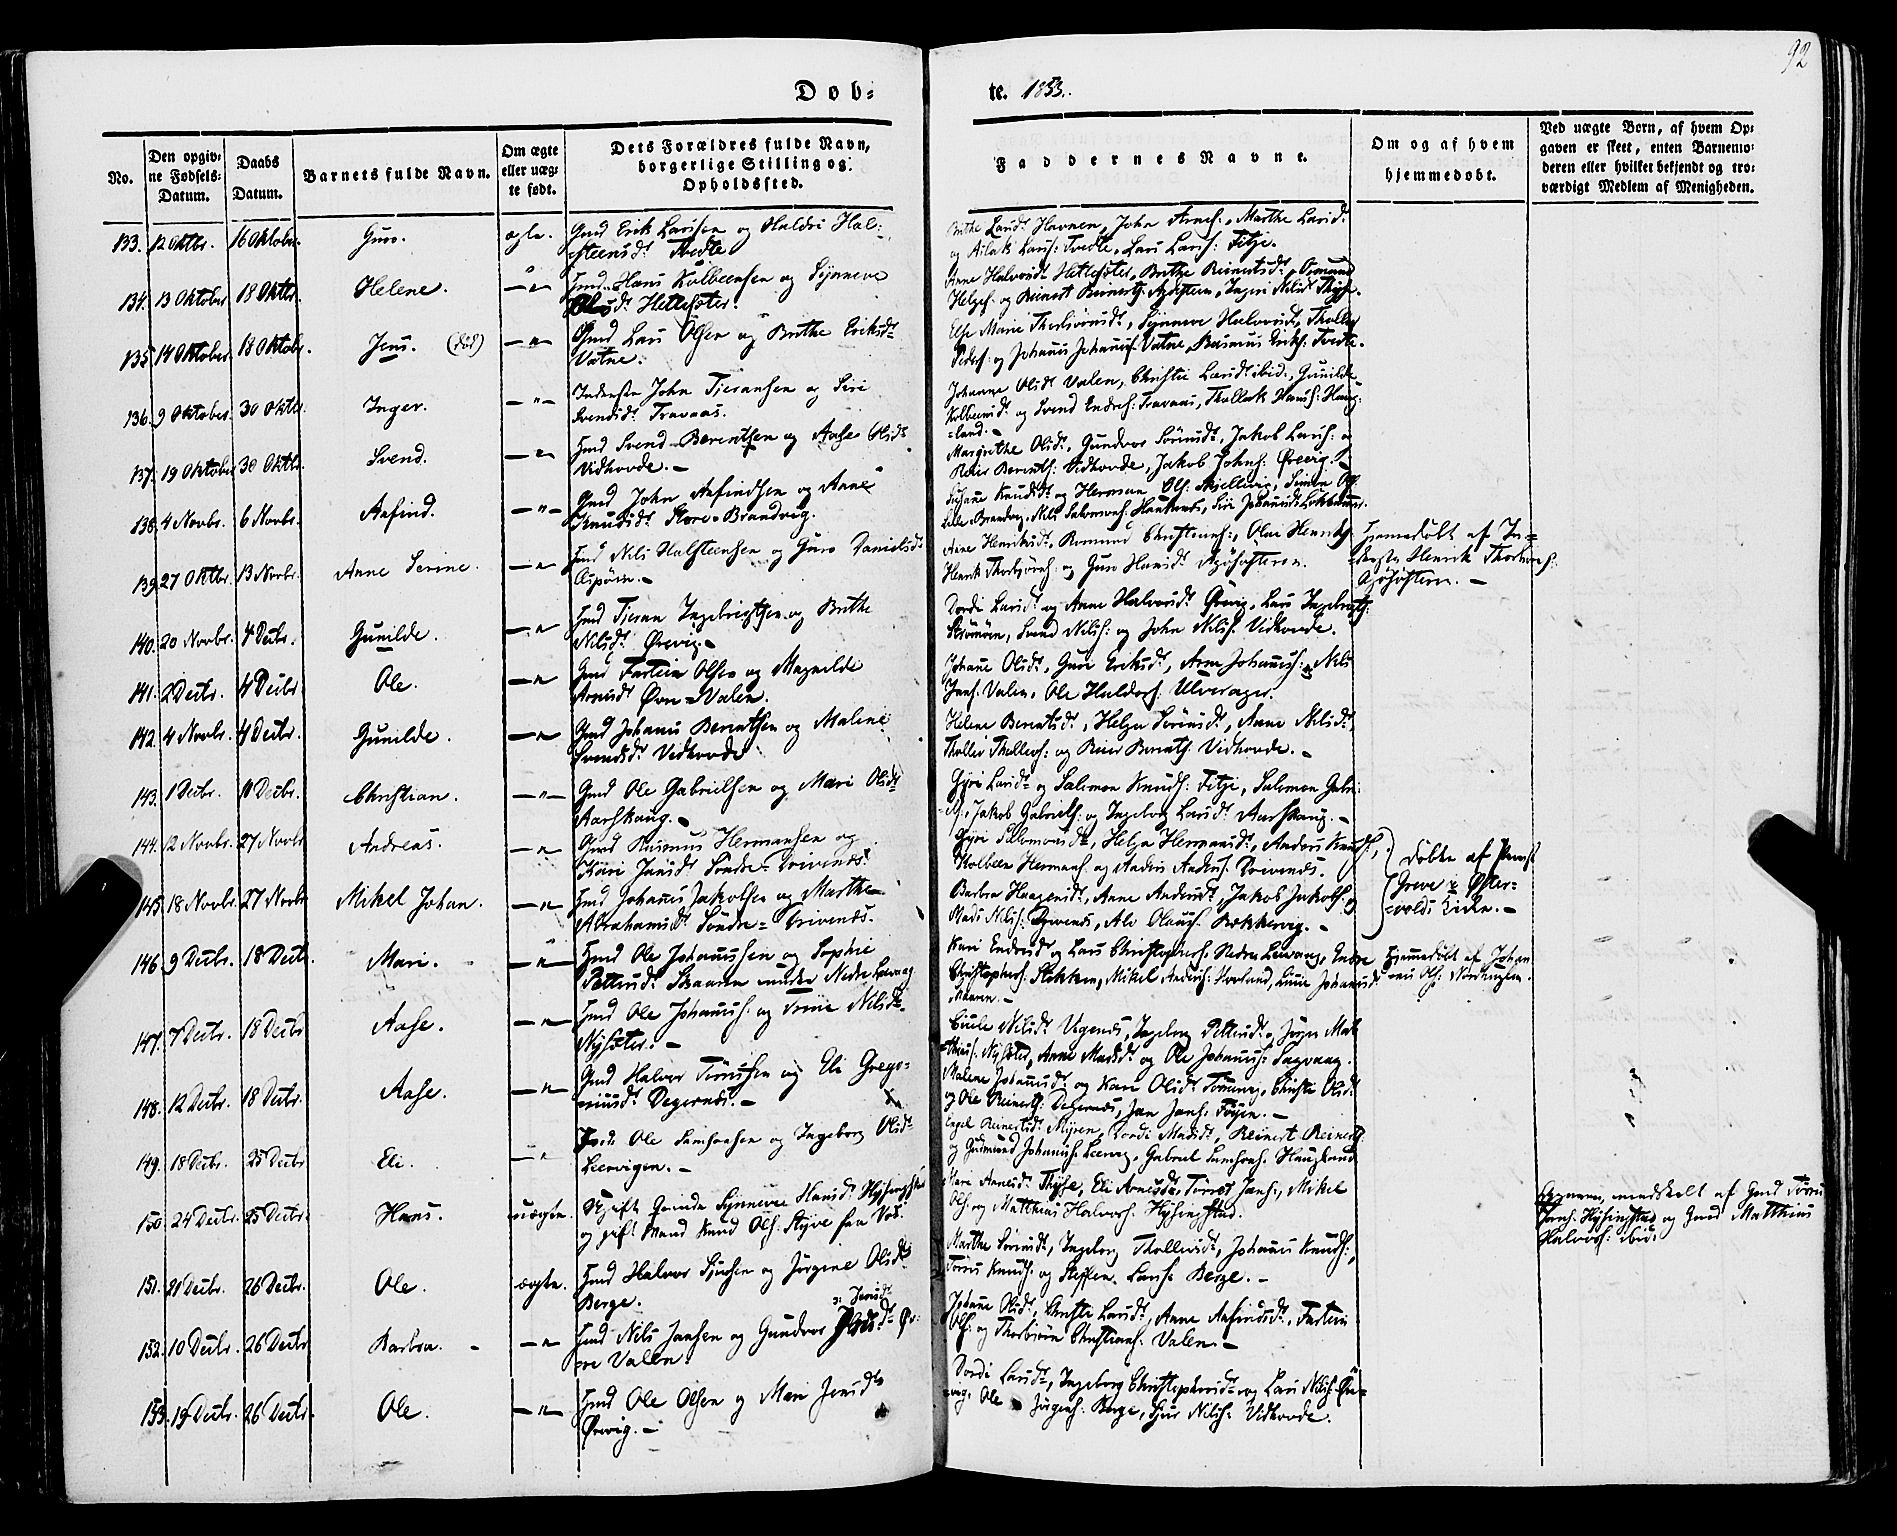 92
Døb=
te. 1853.
No.
Den opgiv=
ne Fødsels=
Datum.
Daabs
Datum.
Barnets fulde Navn.
Om ægte
eller uæg=
te født.
Dets Forældres fulde Navn,
borgerlige Stilling og
Opholdssted.
Faddernes Navne.
Om og af hvem
hjemmedøbt.
Ved uægte Børn, af hvem Op=
gaven er skeet, enten Barnemo=
deren eller hvilket bekjendt og tro=
værdigt Medlem af Menigheden.
133. 12 Oktbr. 16 Oktober. Guro. ægte. Gmd Erik Larsen og Haldri Hal=
steensdt Tvedte
Brithe Larsdt Havnen, John Arnes:, Marthe Larsdt
og Aslak Lars: Tvedte, Lars Lars: Fitje.
134. 13 Oktober 18 Oktbr. Helene. —"— Gmd Hans Kolbeensen og Synneve
Hettesæter.
Anne Halvorsdt Hettesæter, Brithe Reinertsdt,
Helges: og Reinert Reinerts: Ingeri Nilsdt
135. 14 Oktober. 18 Oktober. Jens. (død) —"— Gmd Lars Olsen og Brithe Eriksdt
Vatne.
Else Marie Thorbjørnsdt, Synneve Halvorsdt,
Peders: og Johannes Johannes: Vatne, Rasmus Eriks: Tvedte.
136. 9 Oktober. 30 Oktbr. Inger. —"— Inderste John Tjeransen og Siri
Svendsdt Travaas.
Johanne Olsdt Valen, Christie Larsdt ibid:, Gunilde
Kolbeensdt og Svend Endres: Travaas, Thollak Hans: Haug=
=land.
137. 19 Oktober 30 Oktbr. Svend. —"— Gmd Svend Berentsen og Aase Olsdt
Vidhovde.—
Margrethe Olsdt, Gundvor Sørensdt, Jakob Lars: og
Reier Berents: Vidhovde, Jakob Johns: Ørevig.
138. 4 Novbr. 6 Novbr. Aafind. —"— Gmd John Aafindsen og Anne
Knudsdt Store-Brandvig.
Susanne Knudsdt og Herman Ols: Simon Ols:
Lille-Brandvig, Nils Salomons: Siri Johannesdt
139. 27 Oktbr. 13 Novbr. Anne Serine. —"— Gmd Nils Halsteensen og Guro Danielsdt
Aspøen.—
Anne Henriksdt, Christians:, Olai Henriks:
Henrik Thorbjørns: og Guro Hansdt
Hjemmedøbt af In=
derste Henrik Thorbjørns:
140. 20 Novbr. 4 Decbr. Gunilde. —"— Gmd Tjeran Ingebrigtsen og Brithe
Nilsdt Ørevig.
Dordi Larsdt og Anne Halvorsdt Ørevig, Lars Ingebrigts:
Strømøen, Svend Nils: og John Nils: Vidhovde.
141. 2 Decbr. 4 Decbr. Ole. —"— Gmd Fartein Olsen og Magnilde
Arnesdt Øvre=Valen.
Johanne Olsdt, Guro Eriksdt, Arne Johannes:, Nils
Jans: Valen, Ole Haldors: Ulverager.
142. 4 Novbr. 4 Decbr. Gunilde. —"— Gmd Johannes Berentsen og Malene
Svendsdt Vidhovde
Helene Berentsdt, Helga Sørensdt, Anne Nilsdt,
Tholleiv Tholleivs: og Reier Berents: Vidhovde.—
143. 1 Decbr. 11 Decbr. Christian. —"— Gmd Ole Gabrielsen og Mari Olsdt
Aarskaug.—
Gyri Larsdt og Salomon Knuds: Fitje, Salomon Gabri=
els:, Jakob Gabriels: og Ingeborg Larsdt Aarskaug.—
144. 12 Novbr. 27 Novbr Andreas. —"— Gmd Rasmus Hermansen og
Kari Jansdt Søndre-Drivenes.
Gyri Salomonsdt, Helga Hermansdt, Anders Knuds:,
Kolbeen Hermans: og Anders Anders: Drivenes.
Døbte af Præst
Greve i Øster=
=volds Kirke.—
145. 18 Novbr. 27 Novbr Mikel Johan. —"— Gmd Johannes Jakobsen og Marthe
Abrahamsdt Søndre=Drivenes.
Barbra Haagensdt, Anne Andersdt, Jakob Jakobs: og
Mads Nils: Drivenes, Alv Olaus: Bekkervig.—
146. 9 Decbr. 18 Decbr Mari. —"— Hmd Ole Johannessen og Sophie
Pettersdt under Nedre
Kari Endresdt og Lars Christophers: Nedre Endre
Christophers: Stokken, Mikel Anders: Hovland, Johannesdt
Hjemmedøbt af Johan=
nes Ols:
147. 7 Decbr. 18 Decbr Aase. —"— Gmd Ole Johannes: og Trine Nilsdt
Nysæter.—
Nilsdt Vigenes, Ingeborg Pettersdt, Jørgen Mat=
thias: Nysæter, Anne Madsdt og Ole Johannes: Sagvaag.
148. 12 Decbr. 18 Decbr. Aase. —"— Gmd Halvor Tørresen og Eli Grego=
riusdt Degernes.—
Malene Johannesdt og Kari Olsdt Christie Olsdt
og Ole Reinerts: Degernes, Jan Jans: Føyen.—
149. 18 Decbr. 25 Decbr Eli. —"— Ole Samsonsen og Ingeborg Olsdt
Leervigen.—
Engel Reinertsdt Myren, Dordi Madsdt, Reinert Reinerts:
og Gudmund Johannes: Leervig, Gabriel Samsons: Haugland
150. 24 Decbr. 25 Decbr. Hans. uægte. Ugift Qvinde Synneve Hansdt Hysingstad
og gift Mand Knud Ols: Styve fra Vos.
Mari Arnesdt Thyse, Eli Arnesdt, Tørres Jans:, Mikel
Ols: og Matthias Halvors: Hysingstad.
Opgaven meddelt af Gmd Tørres
Jans: Hysingstad og Gmd Matthias
Halvors: ibid.
151. 21 Decbr. 26 Decbr. Ole. ægte. Gmd Halvor Sjursen og Jørgine Olsdt
Berge.
Marthe Sørensdt, Ingeborg Tholleivsdt, Johannes Knuds:,
Tørres Knuds: og Steffen Lars: Berge.—
152. 10 Decbr. 26 Decbr Barbra. —"— Gmd Nils Jansen og Gundvor Jensdt Øv=
re Valen.
Johanne Olsdt, Christie Larsdt, Anne Aafindsdt, Fartein
Ols: og Thorbjørn Christians: Valen.—
153. 19 Decbr. 26 Decbr. Ole. —"— Gmd Ole Olsen og Mari Jensdt
Ørevig.—
Dordi Larsdt, Ingeborg Christophersdt og Lars Nils: Ør=
=vig, Ole Jørgens: Berge, Sjur Nils: Vidhovde.